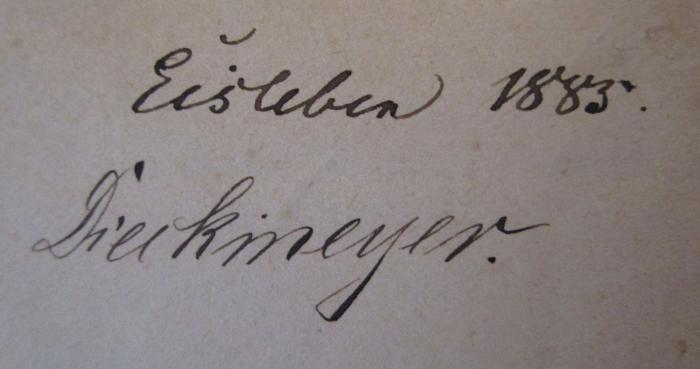 Eisleben 1883.
Dieckmeyer.